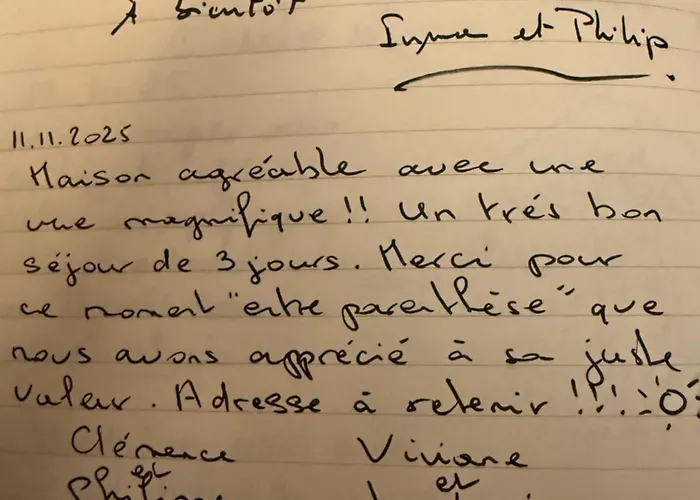 À bientôt
et Philip
11.11.2025
Maison agréable avec une
vue magnifique!! Un trés bon
séjour de 3 jours. Merci pour
ce moment "entre parenthèse" que
nous avons apprécié à sa juste
valeur. Adresse à retenir !!!!
Clémence Viviane
et et